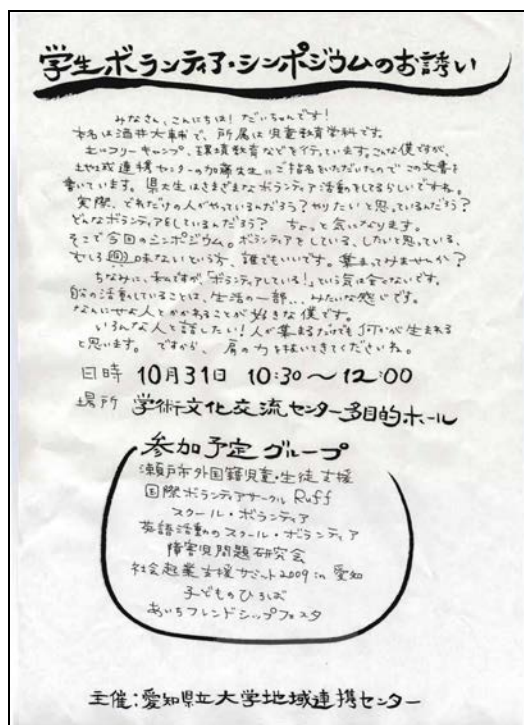 学生ボランティア・シンポジウムのお誘い
みなさん、こんにちは！だいちゃんです！
本名は酒井大輔で、所属は児童教育学科です。
主にフリーキャンプ、環境教育などを行っています。こんな僕ですが、
地域連携センターの加藤先生にご指名をいただいたのでこの文書を
書いています。県大生はさまざまなボランティア活動をしてるらしいですね。
実際、どれだけの人がやっているんだろう？やりたいと思っているんだろう？
どんなボランティアをしているんだろう？ ちょっと気になります。
そこで今回のシンポジウム。ボランティアをしている、したいと思っている、
むしろ興味ないという方、誰でもいいです。集まってみませんか？
ちなみに、私ですが、「ボランティアしている！」という気は全くないです。
自分の活動していることは、生活の一部...みたいな感じです。
なんにせよ人とかかわることが好きな僕です。
いろんな人と話したい！人が集まるだけでも何かが生まれる
と思います。ですから、肩の力を抜いてきてくださいね。
日時 10月31日 10:30〜12:00
場所 学術文化交流センター多目的ホール
参加予定グループ
瀬戸市外国籍児童・生徒支援
国際ボランティアサークル Ruff
スクール・ボランティア
英語活動のスクール・ボランティア
障害児問題研究会
社会起業支援サミット2009 in 愛知
子どものひろば
あいちフレンドシップフェスタ
主催：愛知県立大学地域連携センター